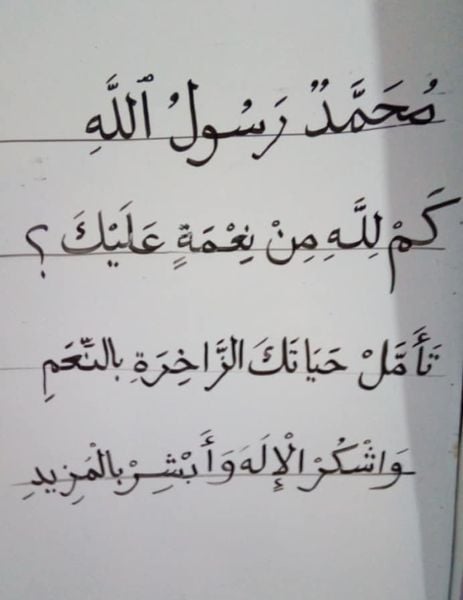 مُحَمَّدٌ رَسُولُ ٱللَّهِ
كَمْ لِلَّهِ مِنْ نِعْمَةٍ عَلَيْكَ ؟
تَأَمَّلْ حَيَاتَكَ الزَّاخِرَةِ بِالنِّعَمِ
وَاشْكُرْ الْإِلَهَ وَأَبْشِرْ بِالْمَزِيدِ